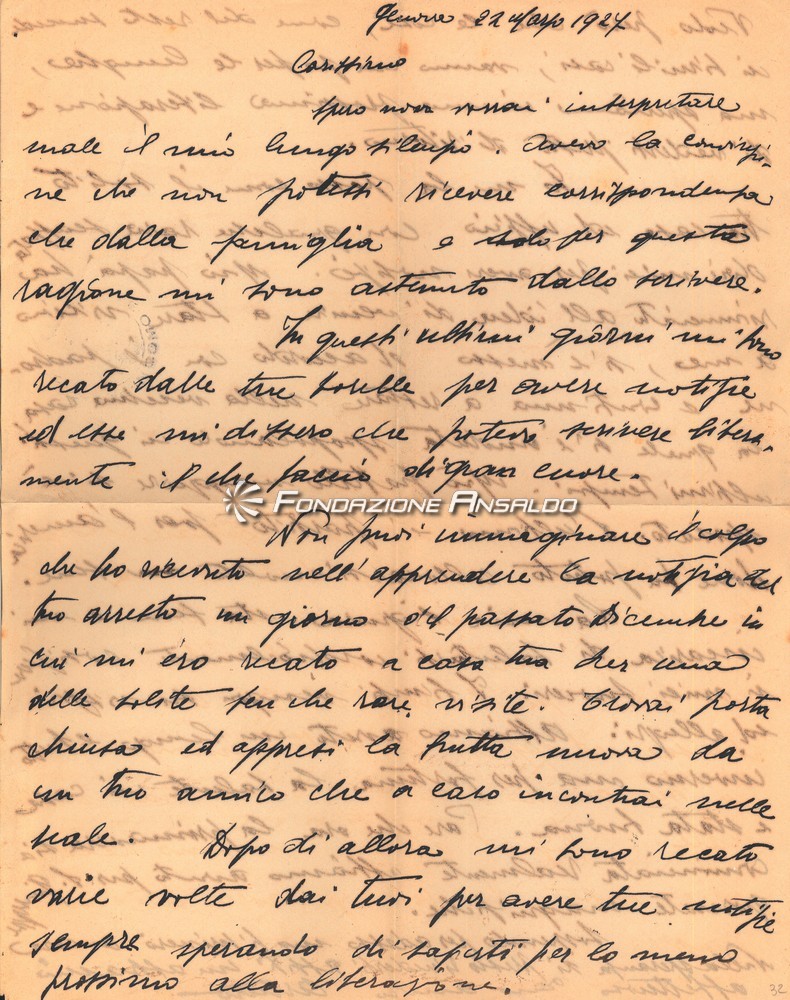 Genova 22 Marzo 1927
Carissimo
spero non vorrai interpretare
male il mio lungo silenzio. Avevo la convinzio-
ne che non potessi ricevere corrispondenza
che dalla famiglia e solo per questa
ragione mi sono astenuto dallo scrivere.
In questi ultimi giorni mi sono
recato dalle tue sorelle per avere notizie
ed esse mi dissero che potevo scrivere libera-
mente il che faccio di gran cuore.
FONDAZIONE ANSALDO
Non puoi immaginare il colpo
che ho ricevuto nell'apprendere la notizia del
tuo arresto un giorno del passato Dicembre in
cui mi ero recato a casa tua per una
delle solite benche rare visite. Trovai porta
chiusa ed appresi la brutta nuova da
un tuo amico che a caso incontrai nelle
scale. Dopo di allora mi sono recato
varie volte dai tuoi per avere tue notizie
sempre sperando di saperti per lo meno
prossimo alla liberazione.
32